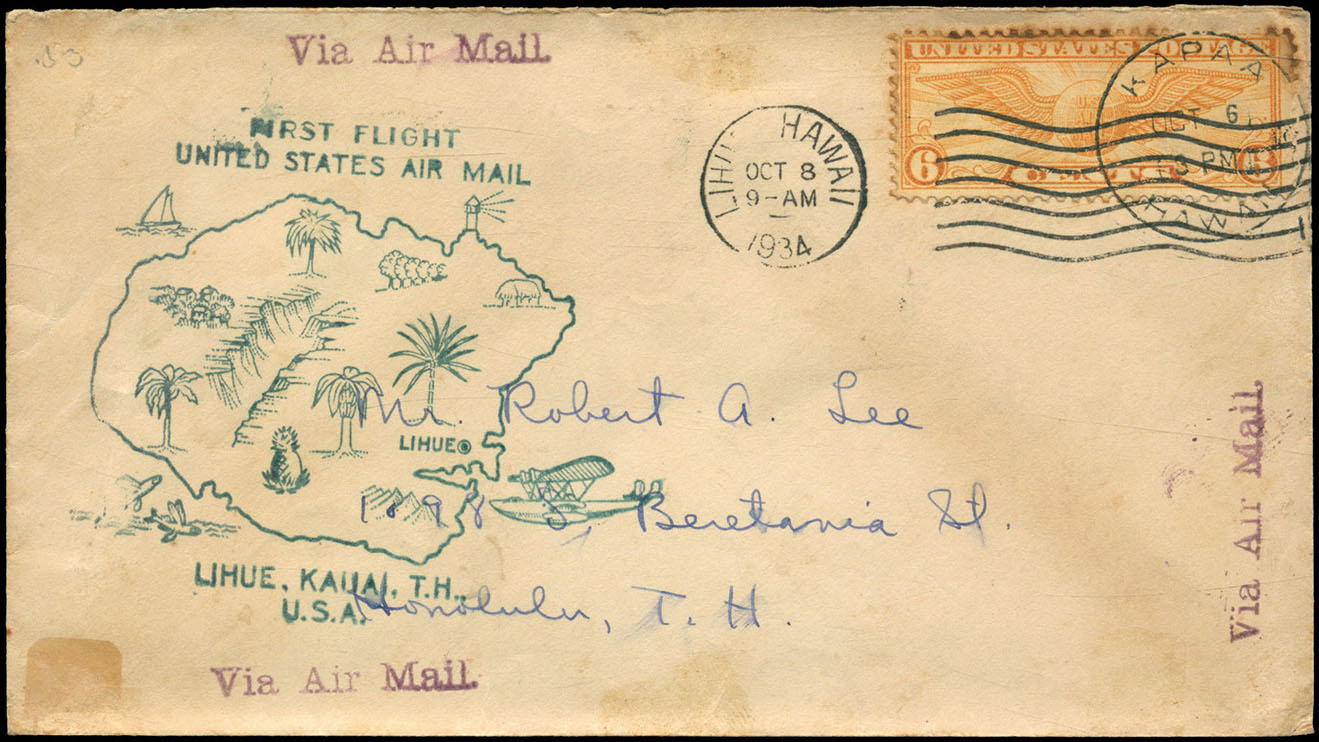 Via Air Mail.
FIRST FLIGHT
UNITED STATES AIR MAIL
LIHUE
LIHUE, KAUAI, T.H.,
U.S.A.
Via Air Mail.
HAWAII
OCT 8
9-AM
1934
UNITED STATES POSTAGE
6 CENTS 6
KAPAA
OCT 6
PM
HAWAII
Mr. Robert A. Lee
S. Beretania St.
Honolulu, T. H.
Via Air Mail.